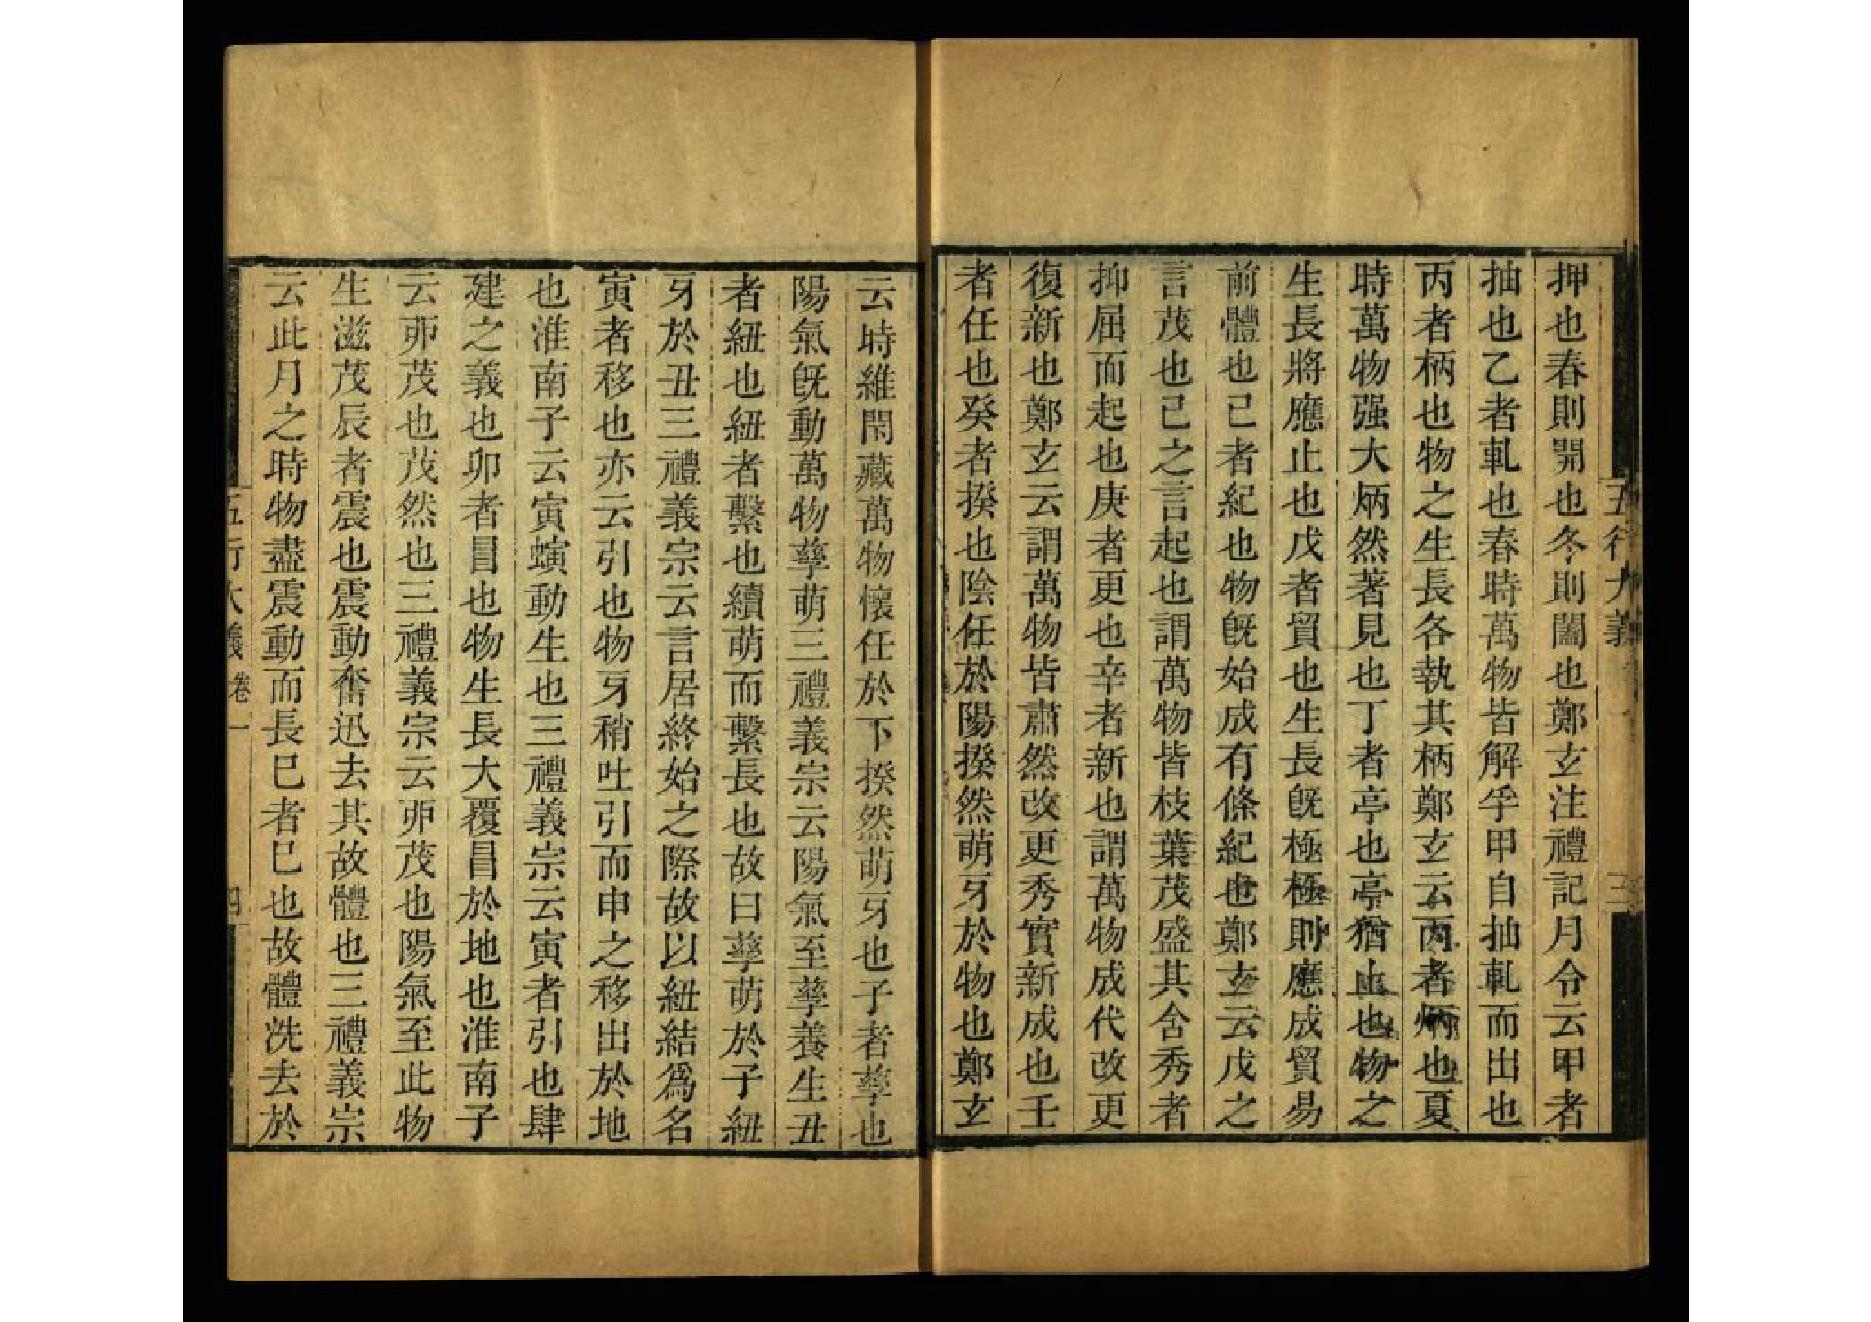 押也春則開也冬則闔也鄭玄注禮記月令云甲者
抽也乙者軋也春時萬物皆解孚甲自抽軋而出也
丙者柄也物之生長各執其柄鄭玄云丙者炳也夏
時萬物强大炳然著見也丁者亭也亭猶止也物之
生長將應止也戊者貿也生長旣極極則應成貿易
前體也己者紀也物旣始成有條紀也鄭玄云戊之
言茂也己之言起也謂萬物皆枝葉茂盛其含秀者
抑屈而起也庚者更也辛者新也謂萬物成代改更
復新也鄭玄云謂萬物皆肅然改更秀實新成也壬
者任也癸者揆也陰任於陽揆然萌牙於物也鄭玄
五行大義
三
云時維閉藏萬物懷任於下揆然萌牙也子者孳也
陽氣旣動萬物孳萌三禮義宗云陽氣至孳養生丑
者紐也紐者繫也續萌而繫長也故曰孳萌於子紐
牙於丑三禮義宗云言居終始之際故以紐結爲名
寅者移也亦云引也物牙稍吐引而申之移出於地
也淮南子云寅螾動生也三禮義宗云寅者引也肆
建之義也卯者冒也物生長大覆冒於地也淮南子
云卯茂也茂然也三禮義宗云卯茂也陽氣至此物
生滋茂辰者震也震動奮迅去其故體也三禮義宗
云此月之時物盡震動而長巳者巳也故體洗去於
五行大義 卷一
四